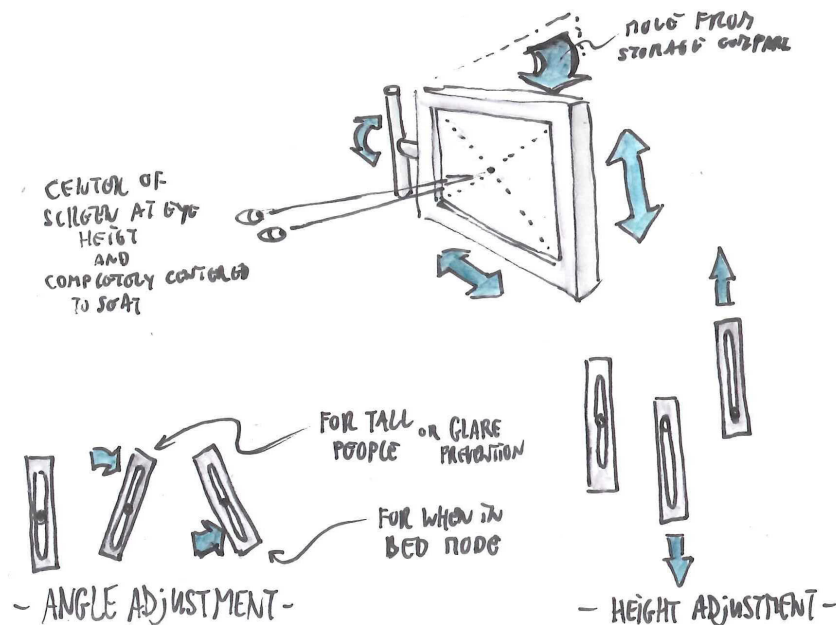 MOVE FROM
STORAGE COMPART
CENTER OF
SCREEN AT EYE
HEIGT
AND
COMPLETELY CENTERED
TO SEAT
FOR TALL OR GLARE
PEOPLE PREVENTION
FOR WHEN IN
BED MODE
- ANGLE ADJUSTMENT -
- HEIGHT ADJUSTMENT -